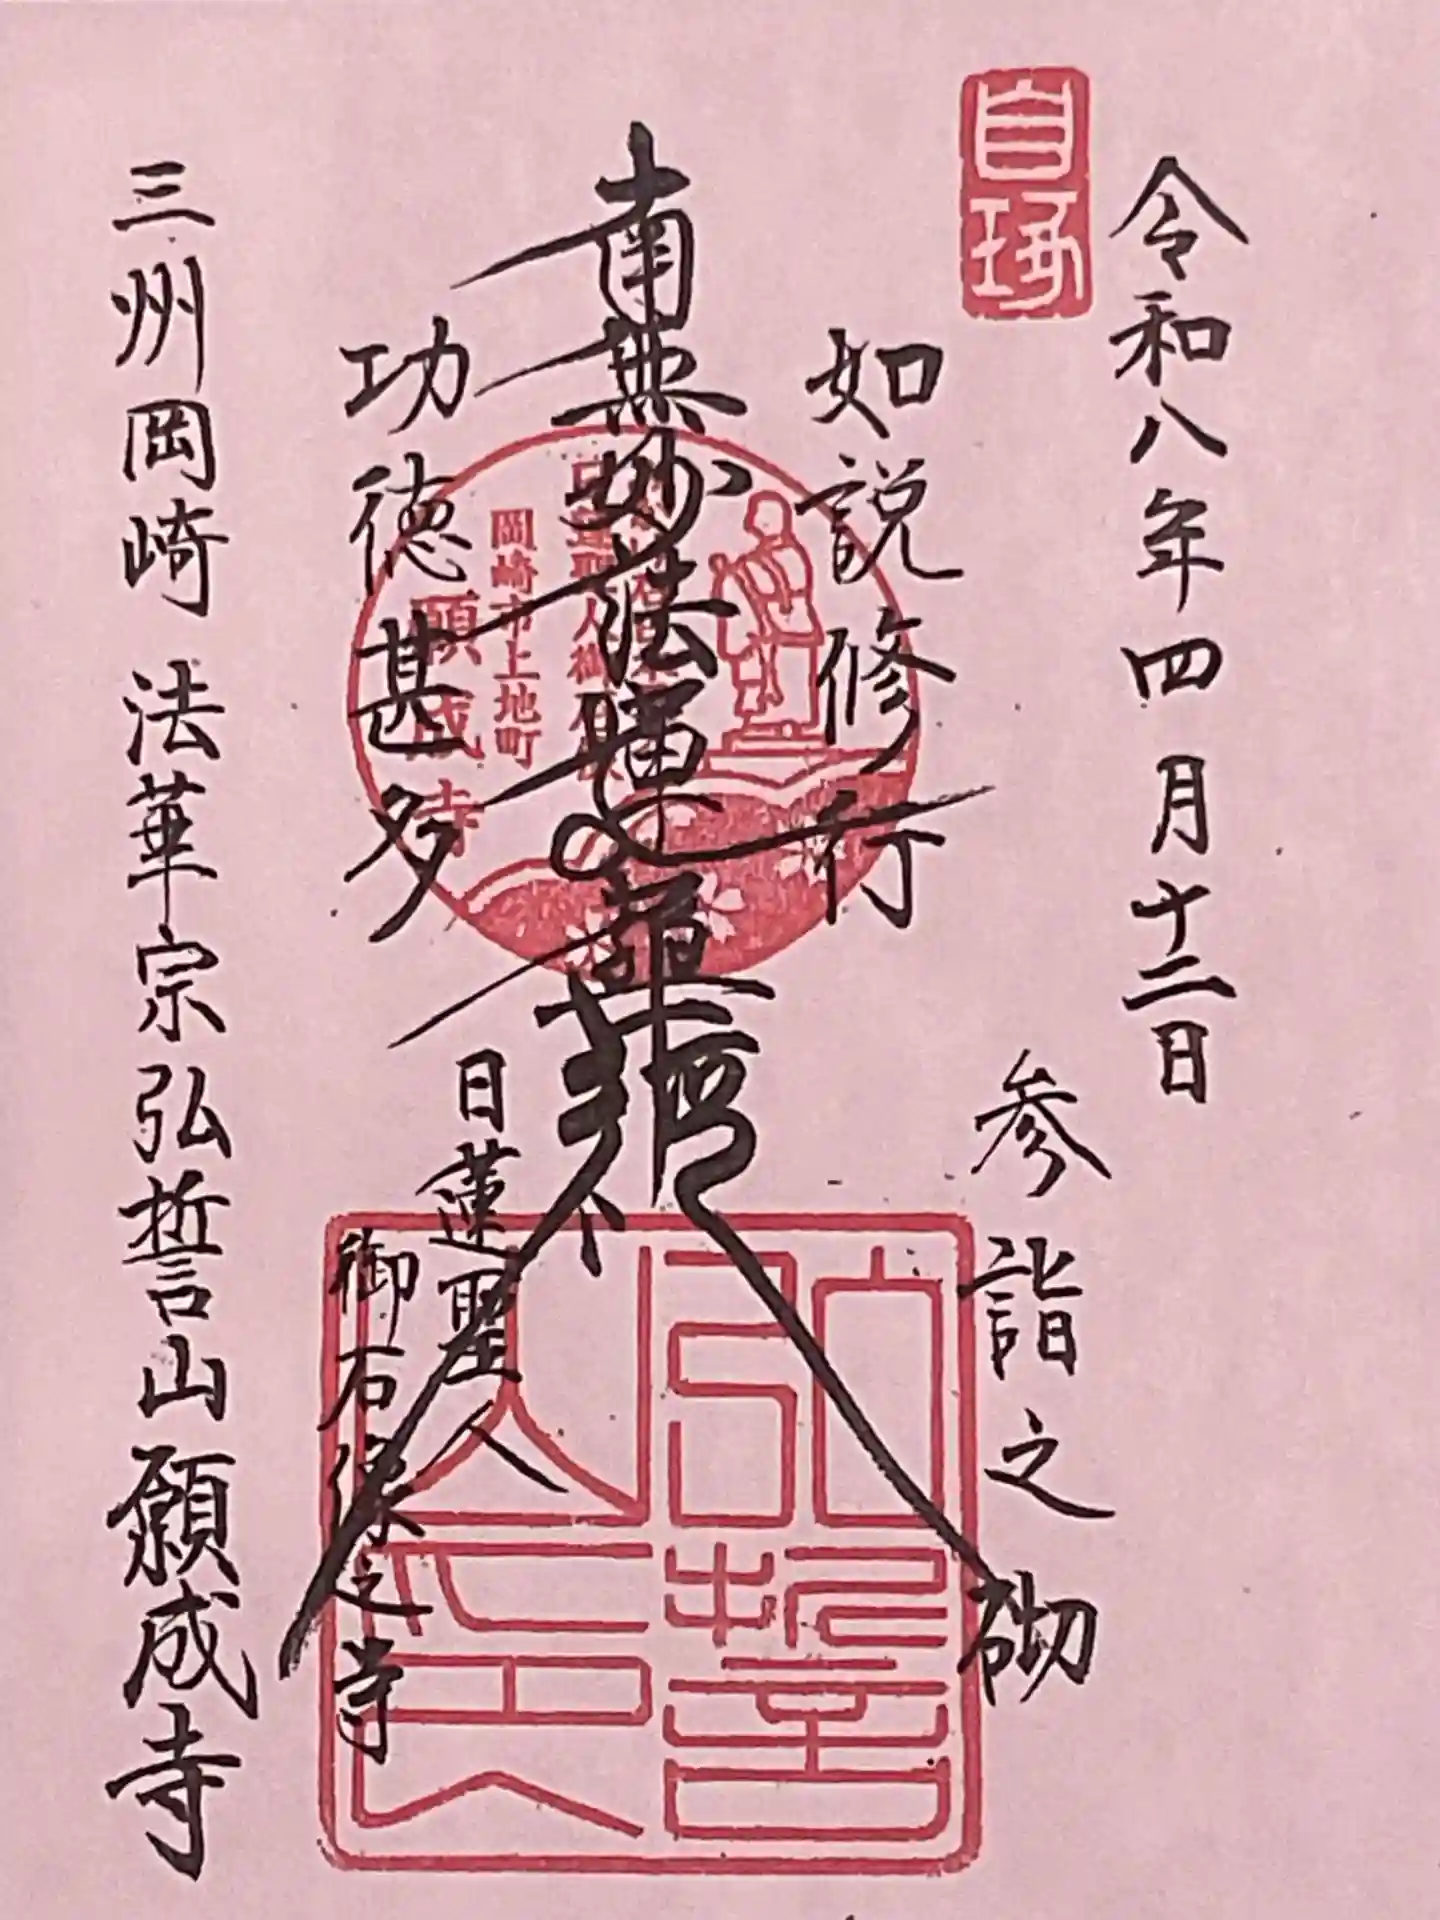 令和八年四月十二日
参詣之砌
如説修行
南無妙法蓮華経
功徳甚多
日蓮聖人
御石像之寺
三州岡崎 法華宗弘誓山願成寺
岡崎市上地町
願成寺
弘誓山印